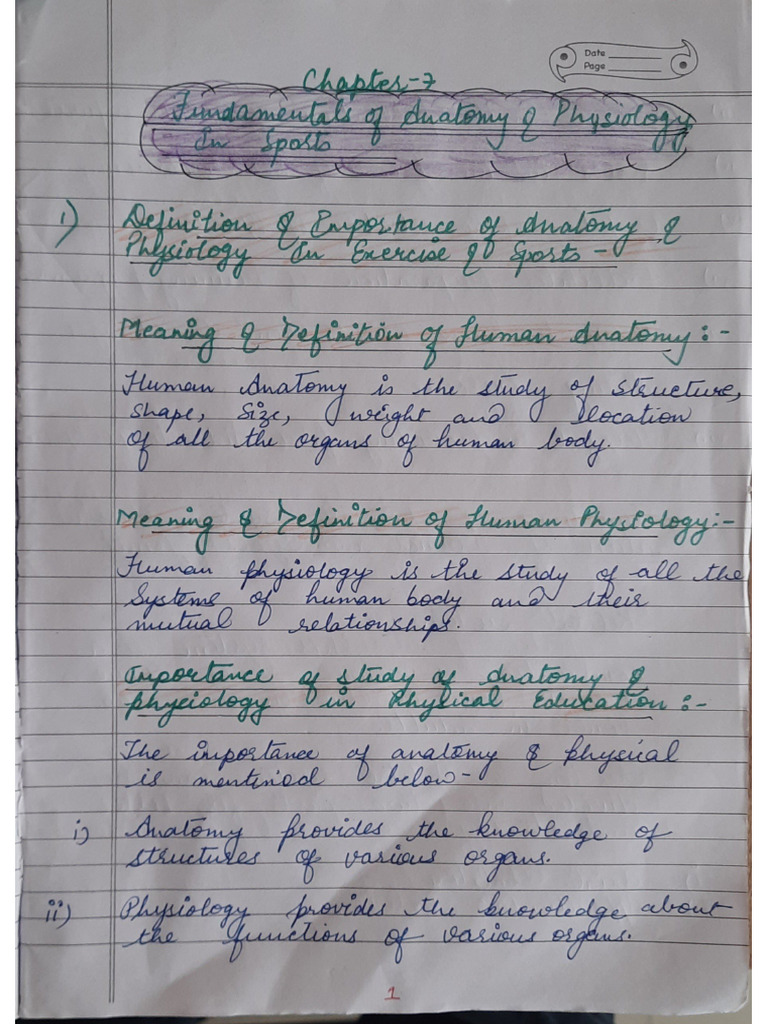 Date
Page
Chapter-7
Fundamentals of Anatomy & Physiology
In Sports
i) Definition & Importance of Anatomy &
Physiology In Exercise & Sports -
Meaning & Definition of Human Anatomy : -
Human Anatomy is the study of structure,
shape, size, weight and location
of all the organs of human body.
Meaning & Definition of Human Physiology:-
Human physiology is the study of all the
systems of human body and their
mutual relationships.
Importance of study of Anatomy &
physiology in Physical Education :-
The importance of anatomy & physical
is mentiniod below-
i) Anatomy provides the knowledge of
structures of various organs.
ii) Physiology provides the knowledge about
the functions of various organs.
1